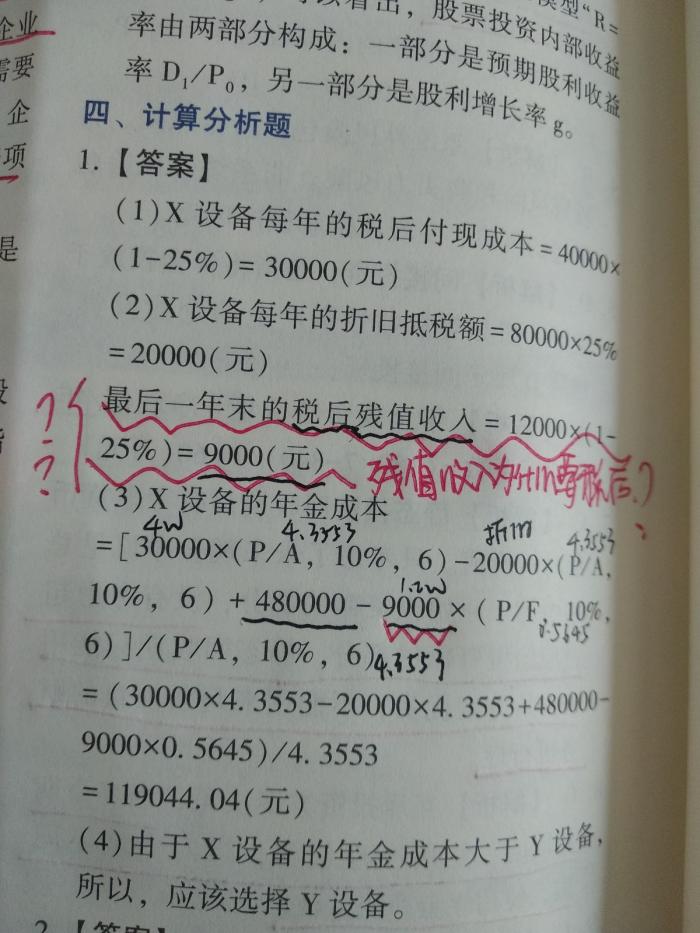 企业
需要
企
项
是
模型“R=
看出，股票投资内部收益
率由两部分构成：一部分是预期股利收益
率 D₁/P₀，另一部分是股利增长率 g。
四、计算分析题
1.【答案】
(1)X 设备每年的税后付现成本=40000×
(1-25%)=30000(元)
(2)X 设备每年的折旧抵税额=80000×25%
=20000(元)
最后一年末的税后残值收入=12000×(1-
25%)=9000(元)
残值收入为什么要税后?
? ?
(3)X 设备的年金成本
4W 4.3553 折旧 4.3553
=[30000×(P/A，10%，6)-20000×(P/A，
1.2W
10%，6)+480000-9000×(P/F，10%，
0.5645
6)]/(P/A，10%，6)
4.3553
=(30000×4.3553-20000×4.3553+480000-
9000×0.5645)/4.3553
=119044.04(元)
(4)由于 X 设备的年金成本大于 Y 设备，
所以，应该选择 Y 设备。
2.【答案】